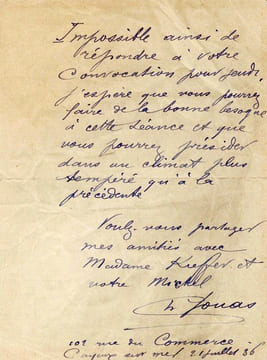 Impossible ainsi de
répondre à votre
Convocation pour jeudi.
j'espère que vous pourrez
faire de la bonne besogne
à cette séance et que
vous pourrez présider
dans un climat plus
tempéré qu'à la
précédente
Voulez vous partager
mes amitiés avec
Madame Kieffer et
votre Michel
Jouas
102 rue du Commerce
Cayeux sur mer 21 juillet 36